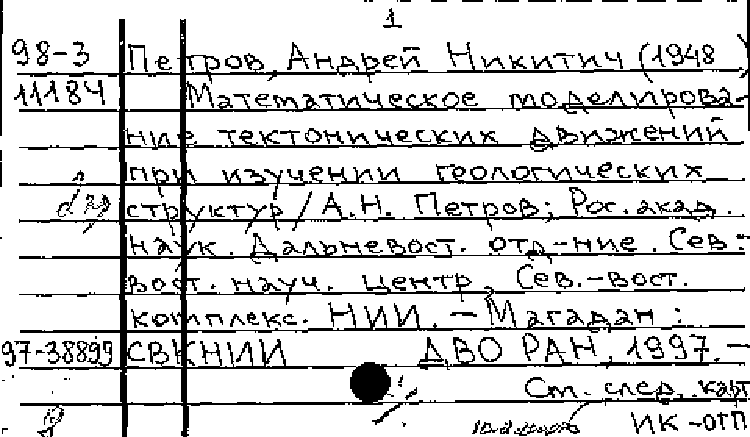 1
98-3 Петров, Андрей Никитич (1948
11184 Математическое моделирова-
ние тектонических движений
при изучении геологических
структур / А.Н. Петров; Рос. акад.
наук. Дальневост. отд-ние. Сев.-
вост. науч. центр, Сев.-вост.
комплекс. НИИ. – Магадан :
97-38899 СВКНИИ ДВО РАН, 1997. –
См. след. карт
ИК-ОТП